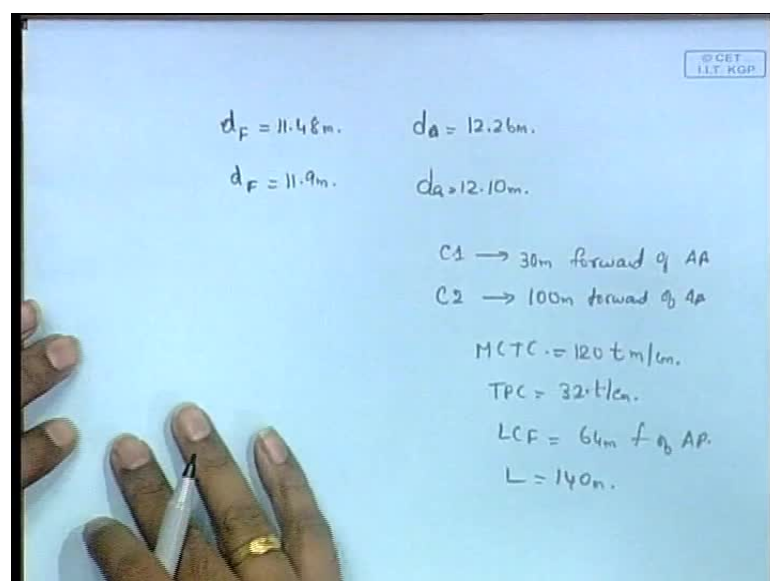 © CET
I.I.T. KGP
dF = 11.48m. da = 12.26m.
dF = 11.9m. da = 12.10m.
C1 → 30m forward of AP
C2 → 100m forward of AP
MCTC. = 120 t m/cm.
TPC = 32.t/cm.
LCF = 64m f of AP.
L = 140m.